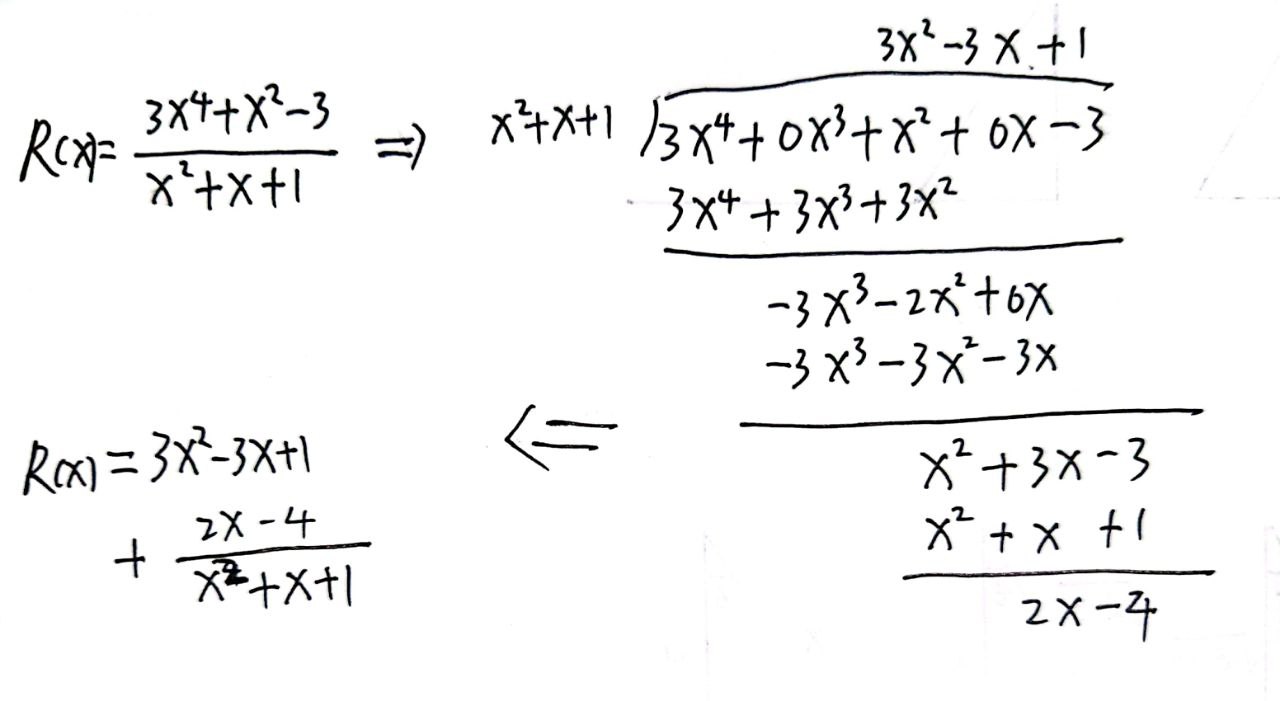 R(x)= (3x⁴+x²-3)/(x²+x+1) ⇒
3x²-3x+1
x²+x+1 )3x⁴+0x³+x²+0x-3
3x⁴+3x³+3x²
-3x³-2x²+0x
-3x³-3x²-3x
x²+3x-3
x²+x+1
2x-4
⇐
R(x)=3x²-3x+1
+ (2x-4)/(x²+x+1)